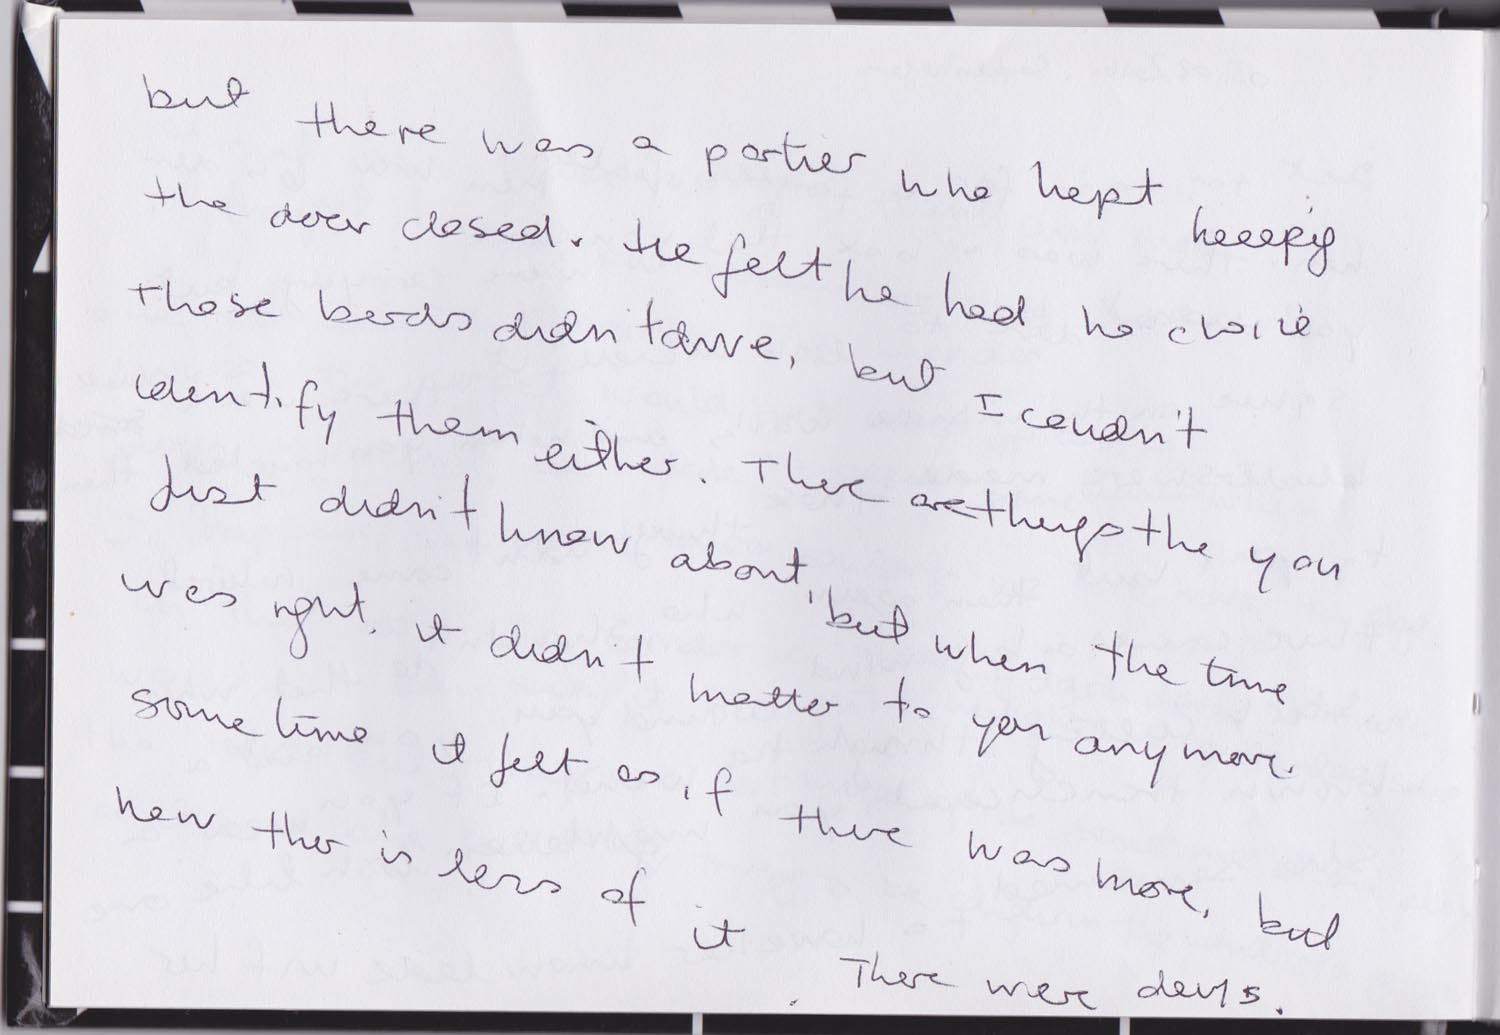 but there was a portier who kept keeepig
the door closed. He felt he had no choice
those bords didn't drive, but I couldn't
identify them either. There are things the you
Just didn't know about, but when the time
was right, it didn't matter to you anymore.
sometime it felt as if there was more, but
now ther is less of it
There were devils.